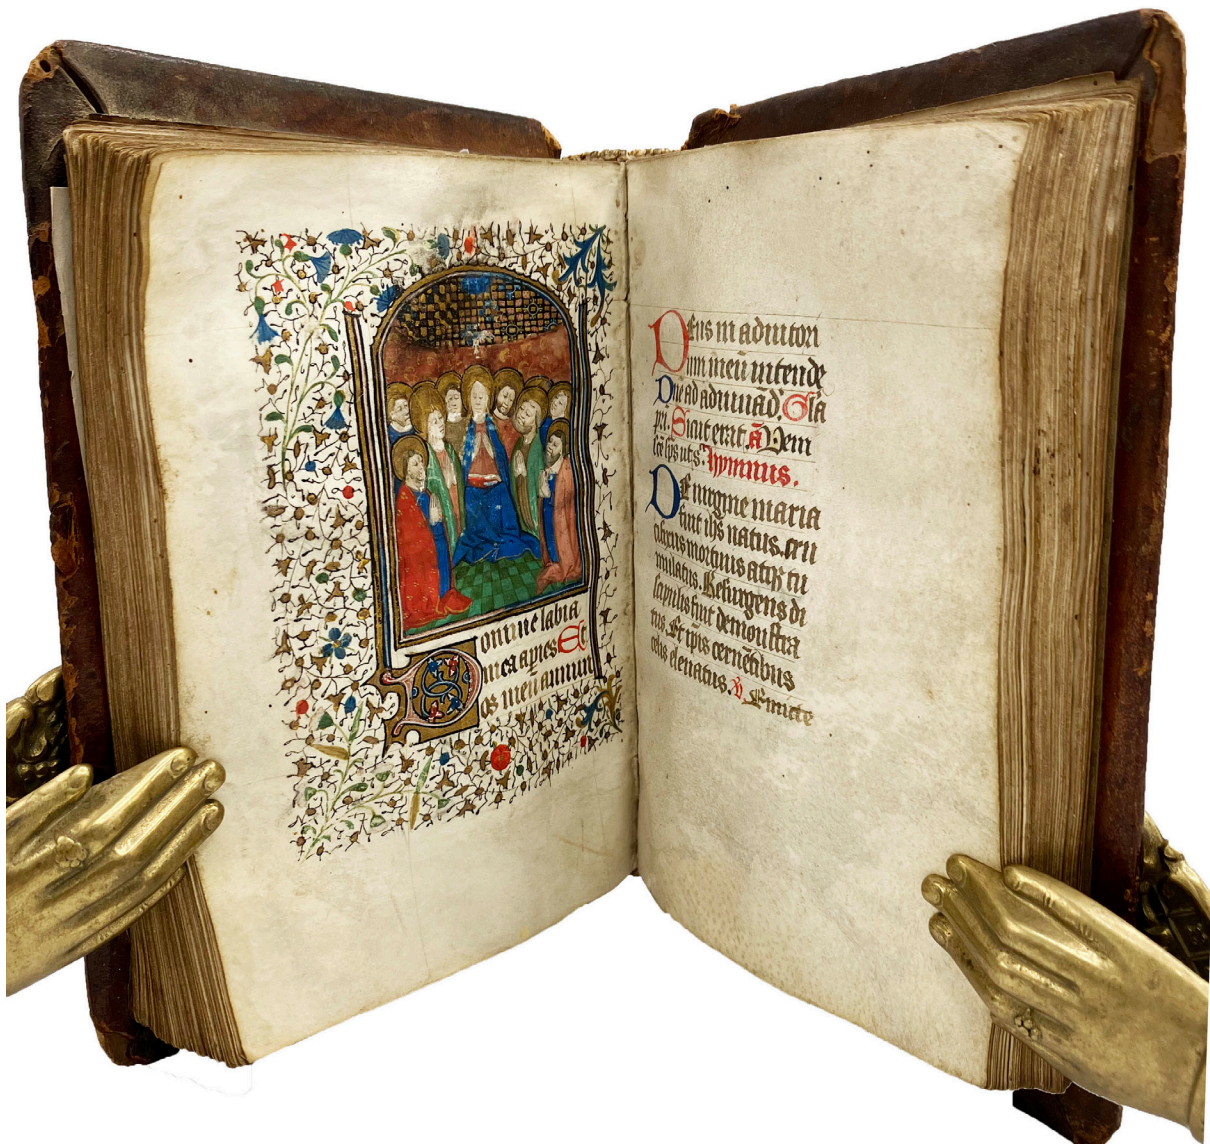 Domine labia
mea aperies Et
os meũ annun
Deus in adiutori
um meũ intende
Dñe ad adiuuãd. Gła
pri. Sicut erat ã Veni
sc̃e sp̃s ut s. hymnus.
De uirgine maria
fuit ihs natus. cru
mortuus atq; tu
mulatus. Resurgens di
scipulis fuit demonstra
tus. Et ip̃is cernẽtibus
celis eleuatus. ꝟ Emicte